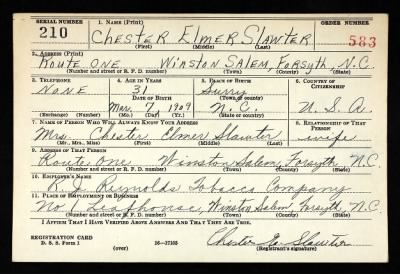 SERIAL NUMBER 1. NAME (Print) ORDER NUMBER
210 CHESTER ELMER SLAWTER 583
(First) (Middle) (Last)
2. ADDRESS (Print)
ROUTE ONE WINSTON SALEM, FORSYTH, N.C.
(Number and street or R. F. D. number) (Town) (County) (State)
3. TELEPHONE 4. AGE IN YEARS 5. PLACE OF BIRTH 6. COUNTRY OF CITIZENSHIP
NONE 31 Surry
DATE OF BIRTH (Town or county)
Mar. 7, 1909 N.C. U.S.A
(Exchange) (Number) (Mo.) (Day) (Yr.) (State or country)
7. NAME OF PERSON WHO WILL ALWAYS KNOW YOUR ADDRESS 8. RELATIONSHIP OF THAT PERSON
Mrs. Chester Elmer Slawter wife
(Mr., Mrs., Miss) (First) (Middle) (Last)
9. ADDRESS OF THAT PERSON
Route One Winston Salem, Forsyth N.C.
(Number and street or R. F. D. number) (Town) (County) (State)
10. EMPLOYER'S NAME
R. J. Reynolds Tobacco Company
11. PLACE OF EMPLOYMENT OR BUSINESS
No 1 Leafhouse, Winston Salem Forsyth, N.C.
(Number and street or R. F. D. number) (Town) (County) (State)
I AFFIRM THAT I HAVE VERIFIED ABOVE ANSWERS AND THAT THEY ARE TRUE.
REGISTRATION CARD
D. S. S. Form 1 16-17105 Chester E. Slawter
(over) (Registrant's signature)